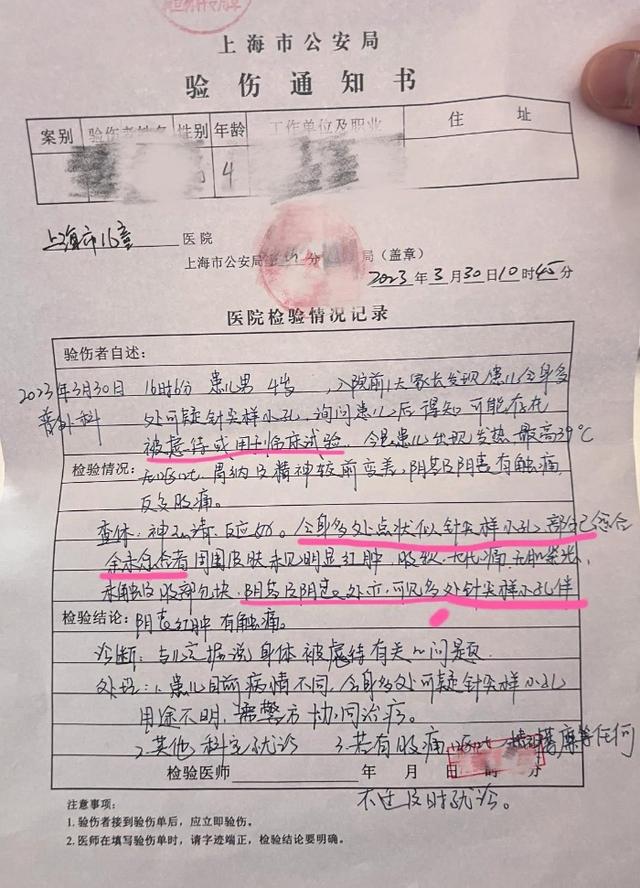 上海市公安局
验伤通知书
案别 验伤者姓名 性别 年龄 工作单位及职业 住址
4
上海市儿童 医院
上海市公安局 分 局（盖章）
2023年3月30日10时45分
医院检验情况记录
验伤者自述：
2023年3月30日 16时6分 患儿男 4岁 ，入院前1天家长发现患儿全身多
普外科 处可疑针尖样小孔，询问患儿后得知可能存在
被虐待或用于临床试验。今患儿出现发热，最高39℃
检验情况：无呕吐，胃纳及精神较前变差，阴茎及阴囊有触痛，
反复腹痛。
查体：神志清，反应好。全身多处点状似针尖样小孔，部分已愈合
余未愈合者周围皮肤未见明显红肿，腹软，无压痛，无肌紧张，
未触及腹部包块，阴茎及阴囊处亦可见多处针尖样小孔伴
检验结论：阴囊红肿有触痛。
诊断：与 据说身体被虐待有关的问题
处理：1.患儿目前病情不同，全身多处可疑针尖样小孔
用途不明，需警方协同治疗。
2.其他科室就诊 3.若有腹痛 呕吐 等任何
检验医师 年 月 日 时 分
不适及时就诊。
注意事项：
1.验伤者接到验伤单后，应立即验伤。
2.医师在填写验伤单时，请字迹端正，检验结论要明确。